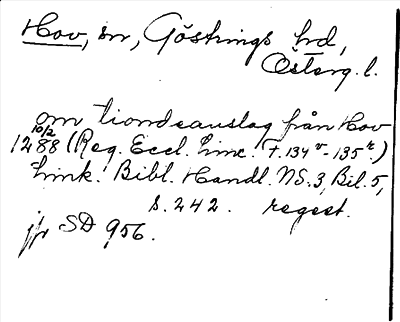 Hov, sn, Göstrings hd,
Österg. l.
om tiondeanslag från Hov
10/2
1288 (Reg. Eccl. Linc. f. 134 v - 135 r.)
Link. Bibl. Handl. NS. 3, Bil. 5,
s. 242. regest.
jfr SD 956.